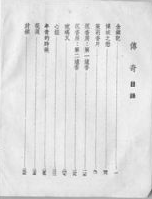 傳奇 目錄
金鎖記
傾城之戀
茉莉香片
沉香屑：第一爐香
沉香屑：第二爐香
琉璃瓦
心經
年青的時候
花凋
封鎖